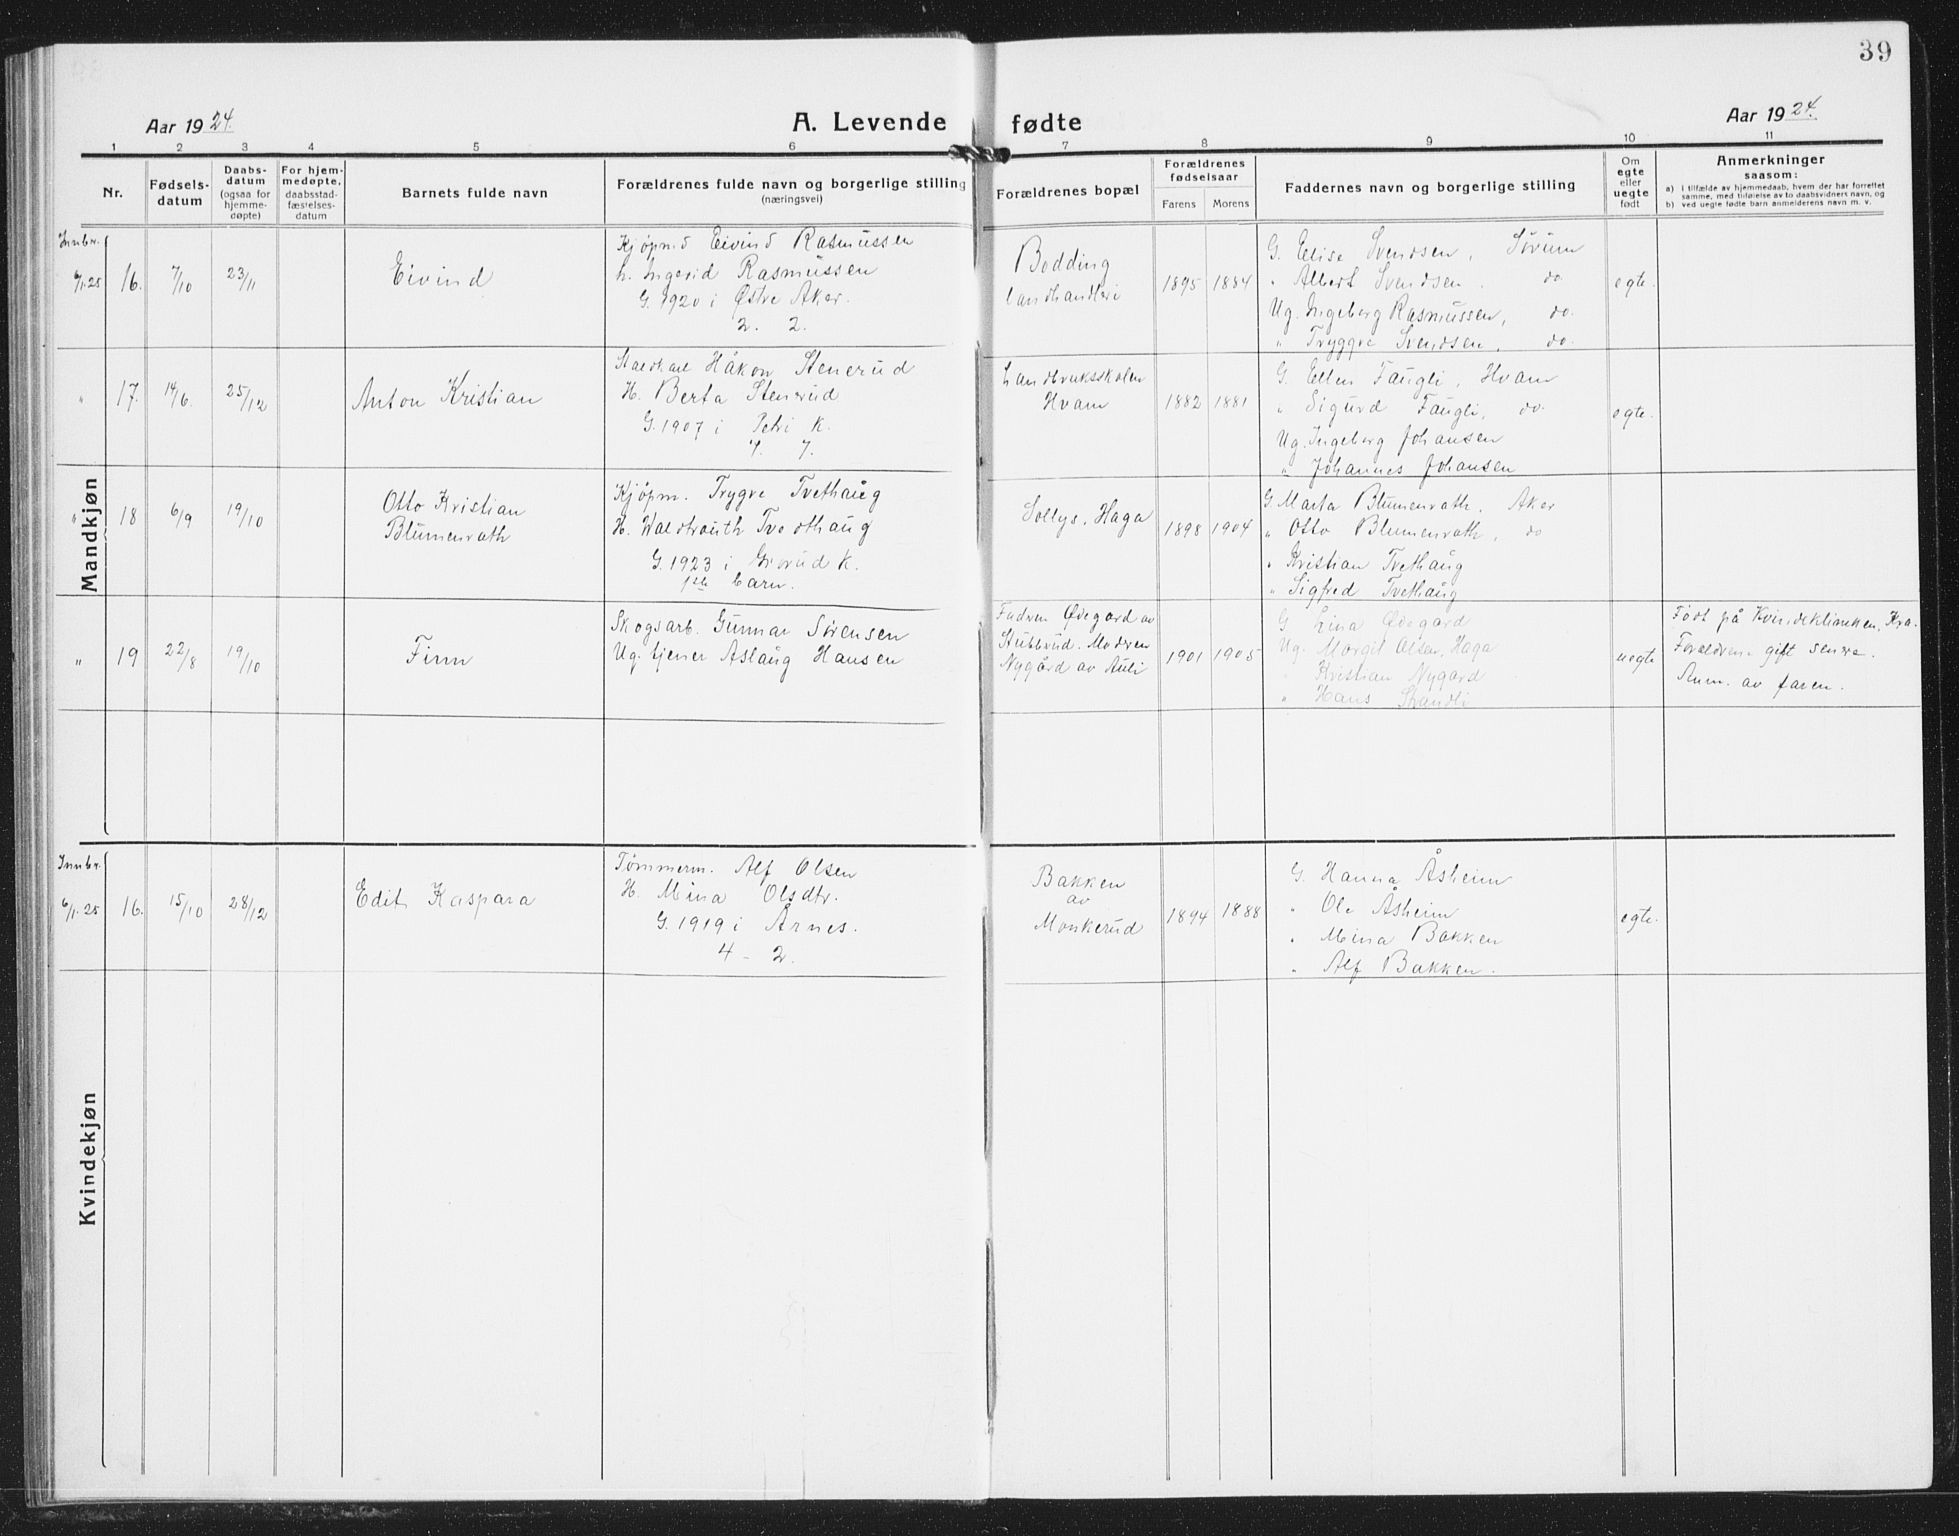 39
Aar 1924.
A. Levende fødte
Aar 1924.
1 2 3 4 5 6 7 8 9 10 11
Nr.
Fødsels-
datum
Daabs-
datum
(ogsaa for
hjemme-
døpte)
For hjem-
medøpte,
daabsstad-
fæstelses-
datum
Barnets fulde navn
Forældrenes fulde navn og borgerlige stilling
(næringsvei)
Forældrenes bopæl
Forældrenes
fødselsaar
Farens Morens
Faddernes navn og borgerlige stilling
Om
egte
eller
uegte
født
Anmerkninger
saasom:
a) i tilfælde av hjemmedaab, hvem der har forrettet
samme, med tilføielse av to daabsvidners navn, og
b) ved uegte fødte barn anmelderens navn m. v.
Mandkjøn
Innbr.
6/1.25 16. 7/10 23/11
Eivind
Kjøpm. Eivind Rasmussen
h. Ingerid Rasmussen
G. 1920 i Østre Aker.
2. 2.
Bodding
landhandleri
1895 1884
G. Elise Svendsen, Sørum
" Albert Svendsen. do.
Ug. Ingeborg Rasmussen, do.
" Tryggve Svendsen, do.
egte.
" 17. 14/6. 25/12
Anton Kristian
Håkon Stenerud
H. Berta Stenerud
G. 1907 i Petri K.
7. 7.
Landbruksskolen
Hvam
1882 1881
G. Ellen Faugli, Hvam
" Sigurd Faugli, do.
Ug. Ingeborg Johansen
" Johannes Johansen
egte.
" 18 6/9 19/10
Otto Kristian
Blumenrath
Kjøpm. Trygve Tvethaug
H. Waldtrauth Tvedthaug
G. 1923 i Grorud K.
1ste barn.
Sollys, Haga
1898 1904
G. Marta Blumenrath, Aker
" Otto Blumenrath, do
" Kristian Tvethaug
" Sigfred Tvethaug
" 19 22/8 19/10
Finn
Skogsarb. Gunnar Sørensen
Ug. tjener Aslaug Hansen
Fadren Ødegård av
Stubbrud. Modren
Nygård av Auli
1901 1905
G Lina Ødegård
Ug. Margit Olsen, Haga
" Kristian Nygard
" Hans Strandli
uegte
Født på Kvindeklineken, Kra.
Foreldrene gift senere.
Anm. av faren.
Kvindekjøn
Innbr.
6/1.25 16. 15/10 28/12
Edit Kaspara
Tømmerm. Alf Olsen
H. Mina Olsdtr.
G. 1919 i Årnes.
4 - 2.
Bakken
av
Monkerud
1894 1888
G. Hanna Åsheim
" Ole Åsheim
" Mina Bakken
" Alf Bakken.
egte.